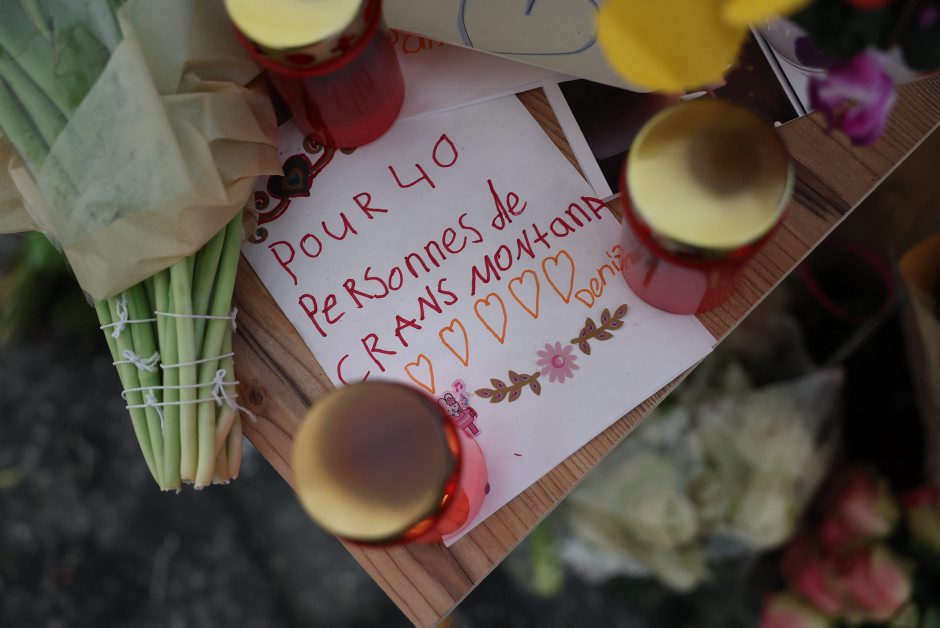 POUR 40
PERSONNES de
CRANS MONTANA